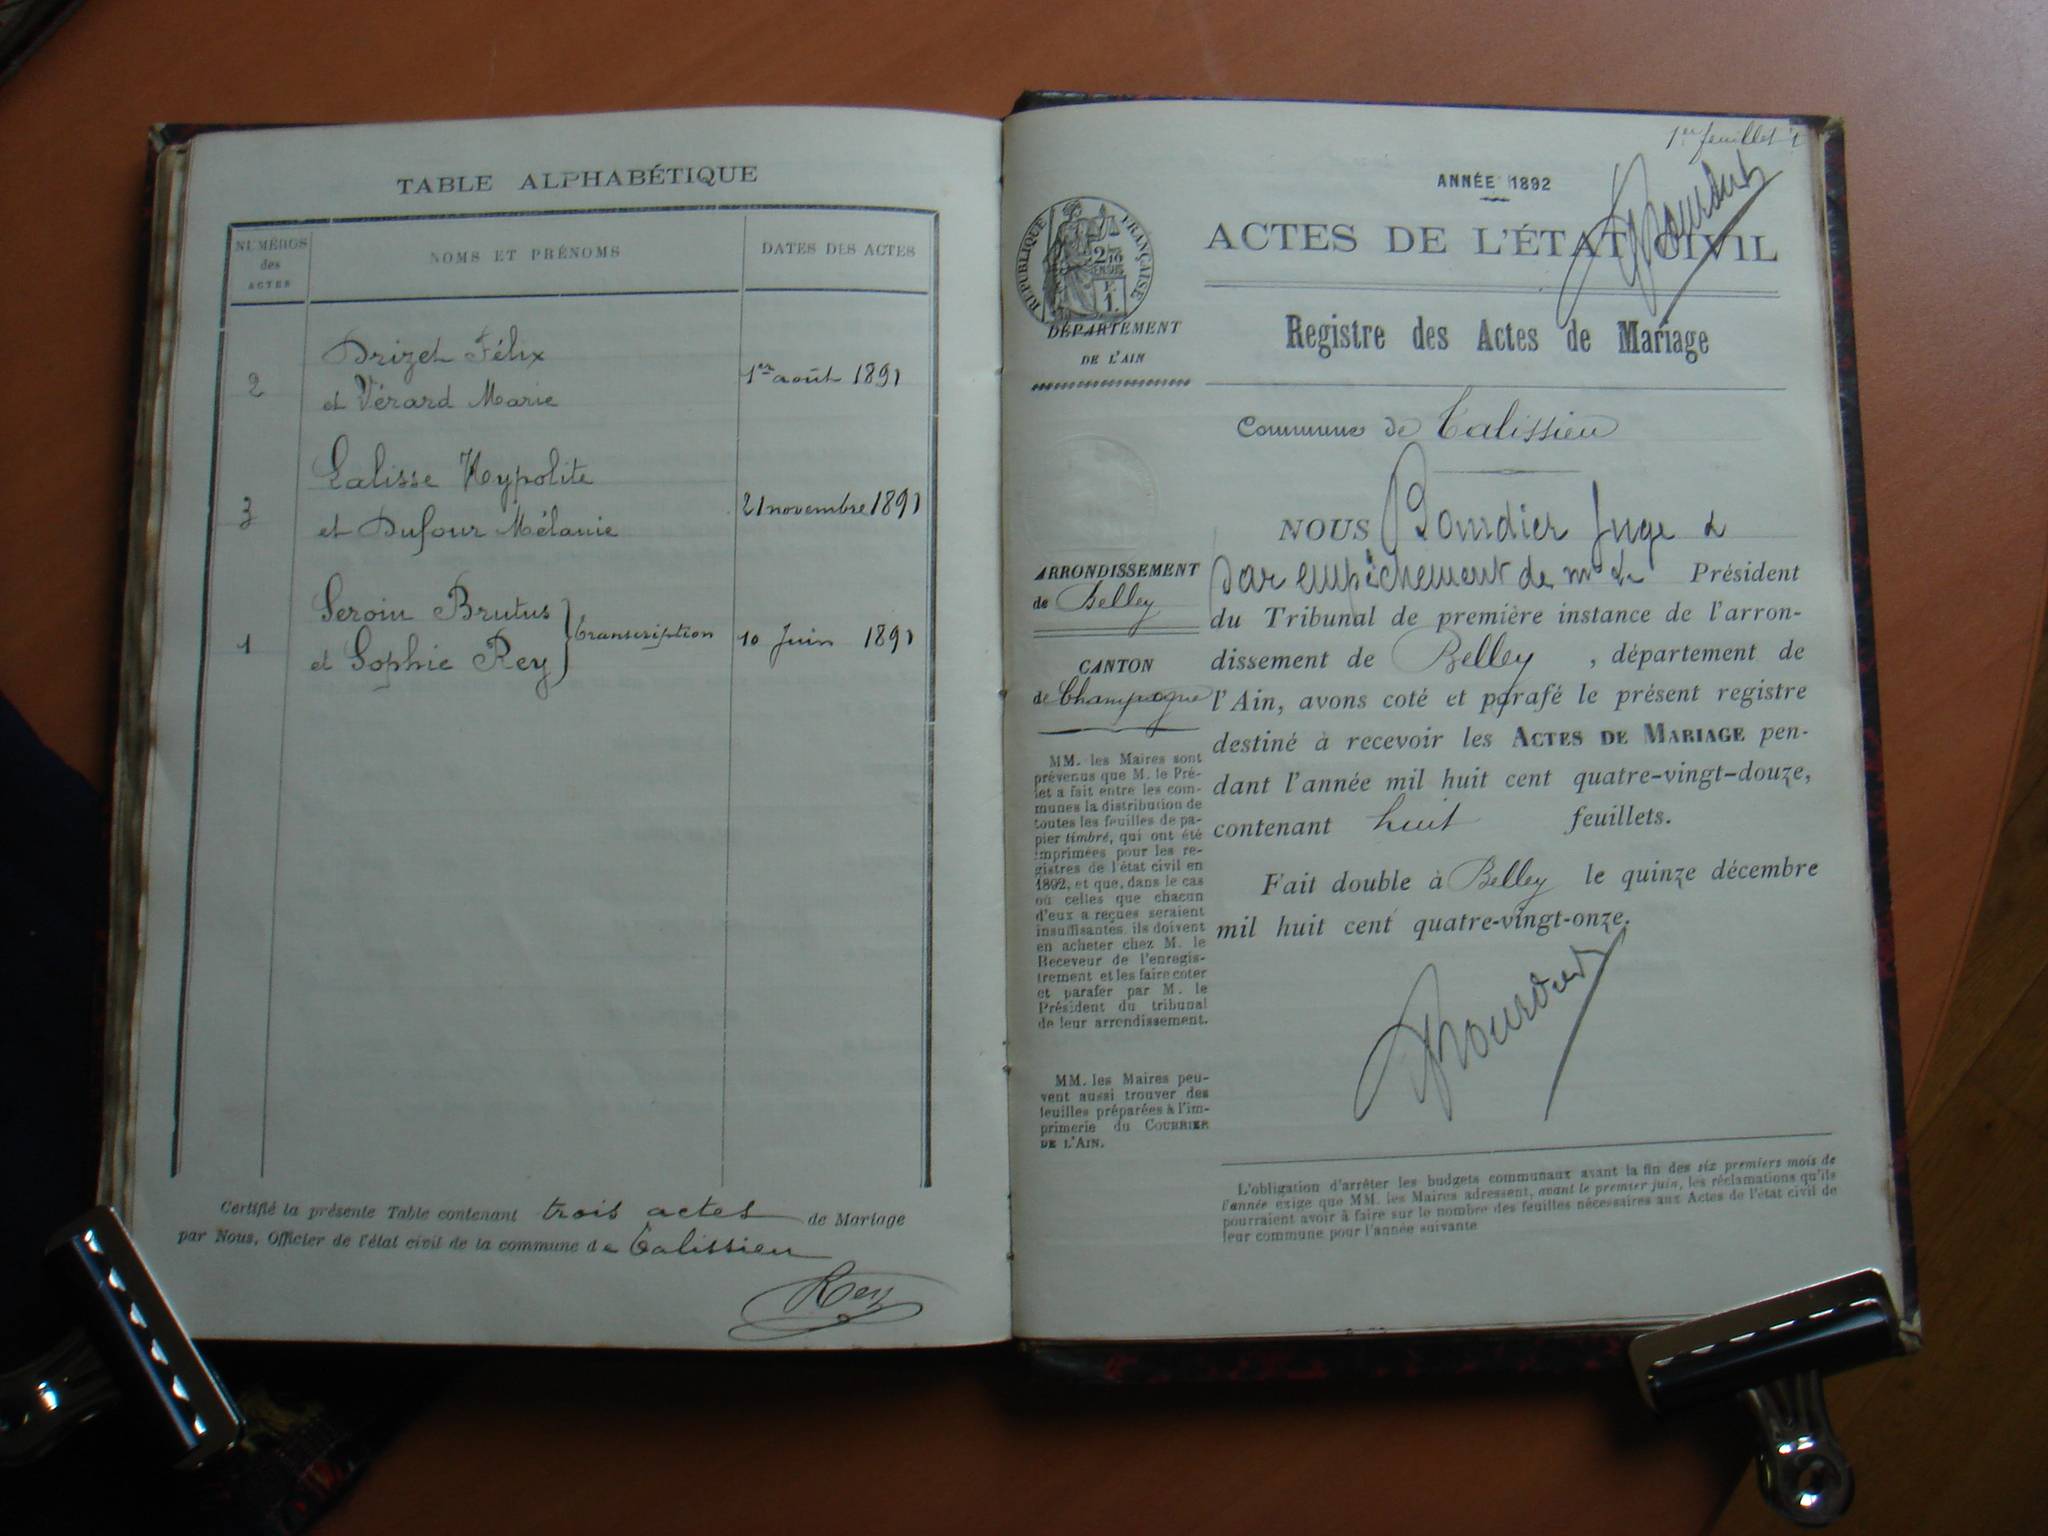 TABLE ALPHABÉTIQUE
NUMÉROS
des
ACTES
NOMS ET PRÉNOMS
DATES DES ACTES
Drizet Félix
2
et Vérard Marie
1er août 1891
Lalisse Hypolite
3
et Dufour Mélanie
21 novembre 1891
Seroin Brutus
1
et Sophie Rey
transcription
10 Juin 1891
Certifié la présente Table contenant trois actes de Mariage
par Nous, Officier de l'état civil de la commune de Talissieu
Rey
1er feuillet
ANNÉE 1892
RÉPUBLIQUE FRANÇAISE
ACTES DE L'ÉTAT CIVIL
DÉPARTEMENT
DE L'AIN
Registre des Actes de Mariage
Commune de Talissieu
NOUS Bourdier Juge
par empêchement de Mr le Président
du Tribunal de première instance de l'arron-
dissement de Belley, département de
l'Ain, avons coté et parafé le présent registre
destiné à recevoir les ACTES DE MARIAGE pen-
dant l'année mil huit cent quatre-vingt-douze,
contenant huit feuillets.
Fait double à Belley le quinze décembre
mil huit cent quatre-vingt-onze.
ARRONDISSEMENT
de Belley
CANTON
de Champagne
MM. les Maires sont
prévenus que M. le Pré-
fet a fait entre les com-
munes la distribution de
toutes les feuilles de pa-
pier timbré, qui ont été
imprimées pour les re-
gistres de l'état civil en
1892, et que, dans le cas
où celles que chacun
d'eux a reçues seraient
insuffisantes, ils doivent
en acheter chez M. le
Receveur de l'enregis-
trement et les faire coter
et parafer par M. le
Président du tribunal
de leur arrondissement.
MM. les Maires peu-
vent aussi trouver des
feuilles préparées à l'im-
primerie du COURRIER
DE L'AIN.
L'obligation d'arrêter les budgets communaux avant la fin des six premiers mois de
l'année exige que MM. les Maires adressent, avant le premier juin, les réclamations qu'ils
pourraient avoir à faire sur le nombre des feuilles nécessaires aux Actes de l'état civil de
leur commune pour l'année suivante